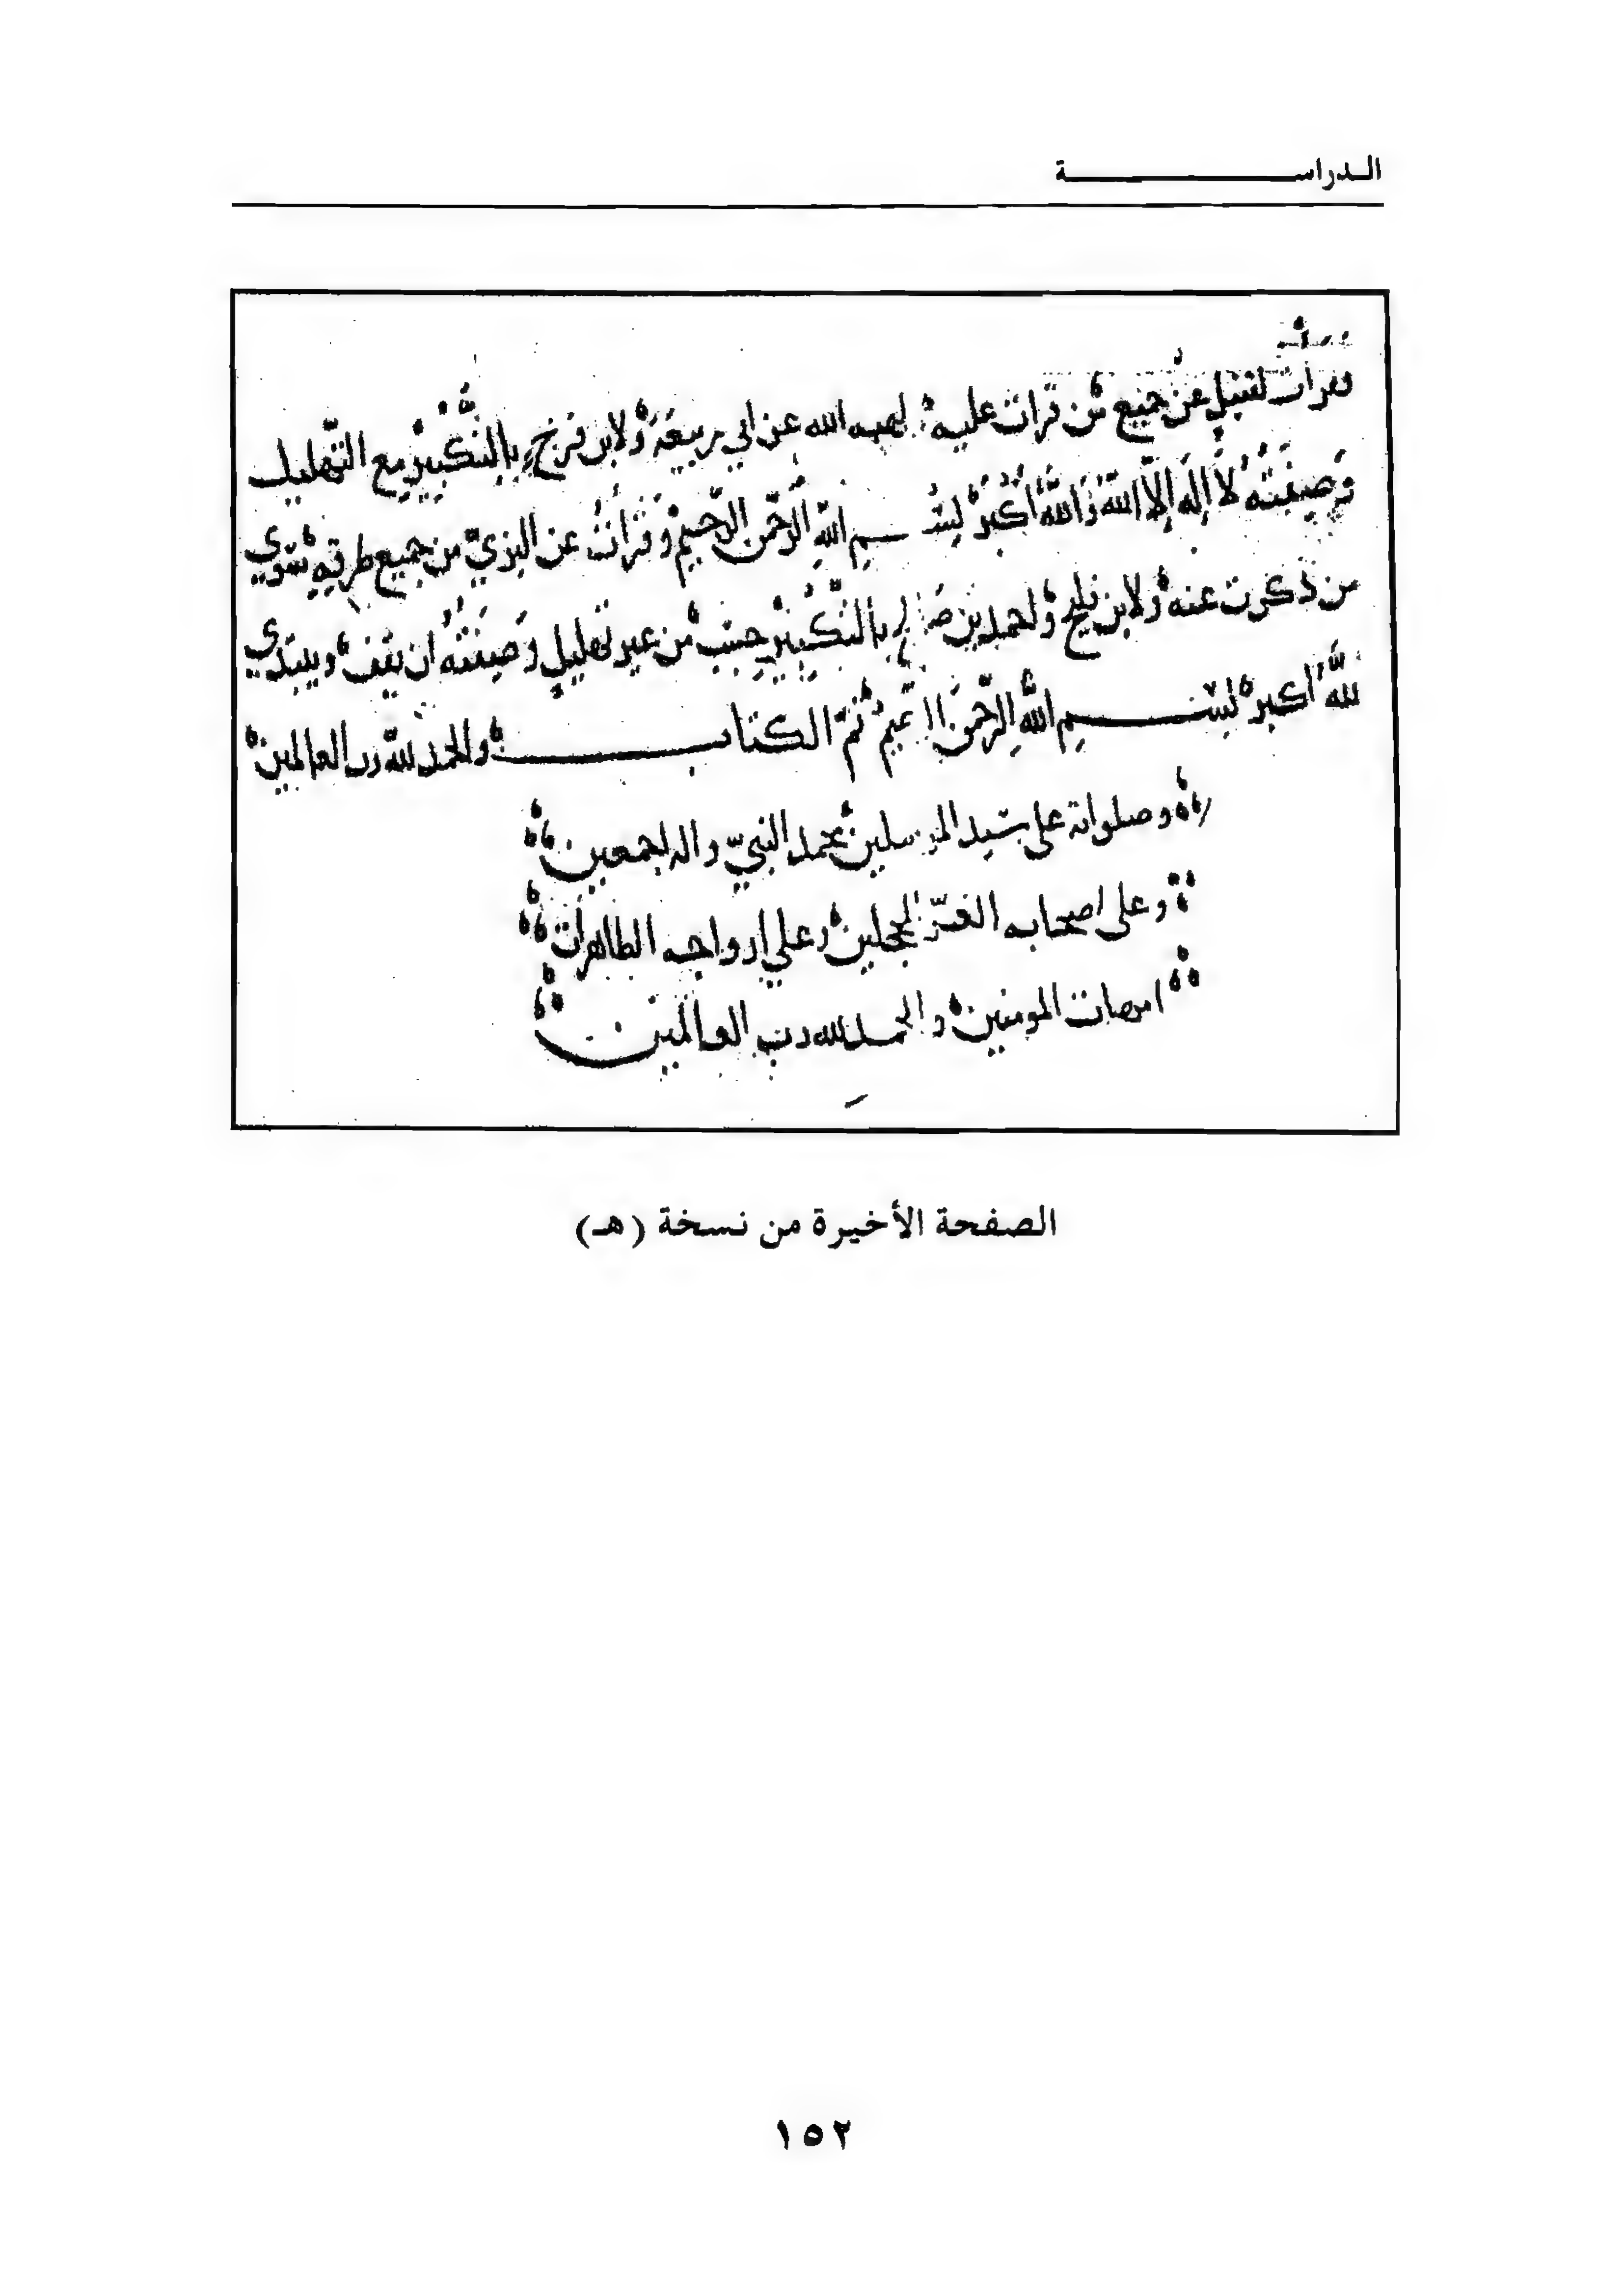 الـدراســـــــــــة
وقرات لقنبل عن جميع من قرات عليه لهبه الله عن ابي ربيعة ولابن فرح بالتكبير مع التهليل
وصيغته لا إله إلا الله والله أكبر بسم الله الرحمن الرحيم وقرأت عن البزي من جميع طرقه سوي
من ذكرت عنه ولابن فليح ولحمد بن بالتكبير حسب من غير تهليل وصيغته ان يقف ويبتدي
الله أكبر بسم الله الرحمن تم الكتاب والحمد لله رب العالمين
وصلواته على سيد المرسلين محمد النبي واله اجمعين
وعلى اصحابه الغر المحجلين وعلي ازواجه الطاهرات
امهات المومنين والحمد لله رب العالمين
الصفحة الأخيرة من نسخة (هـ)
١٥٢